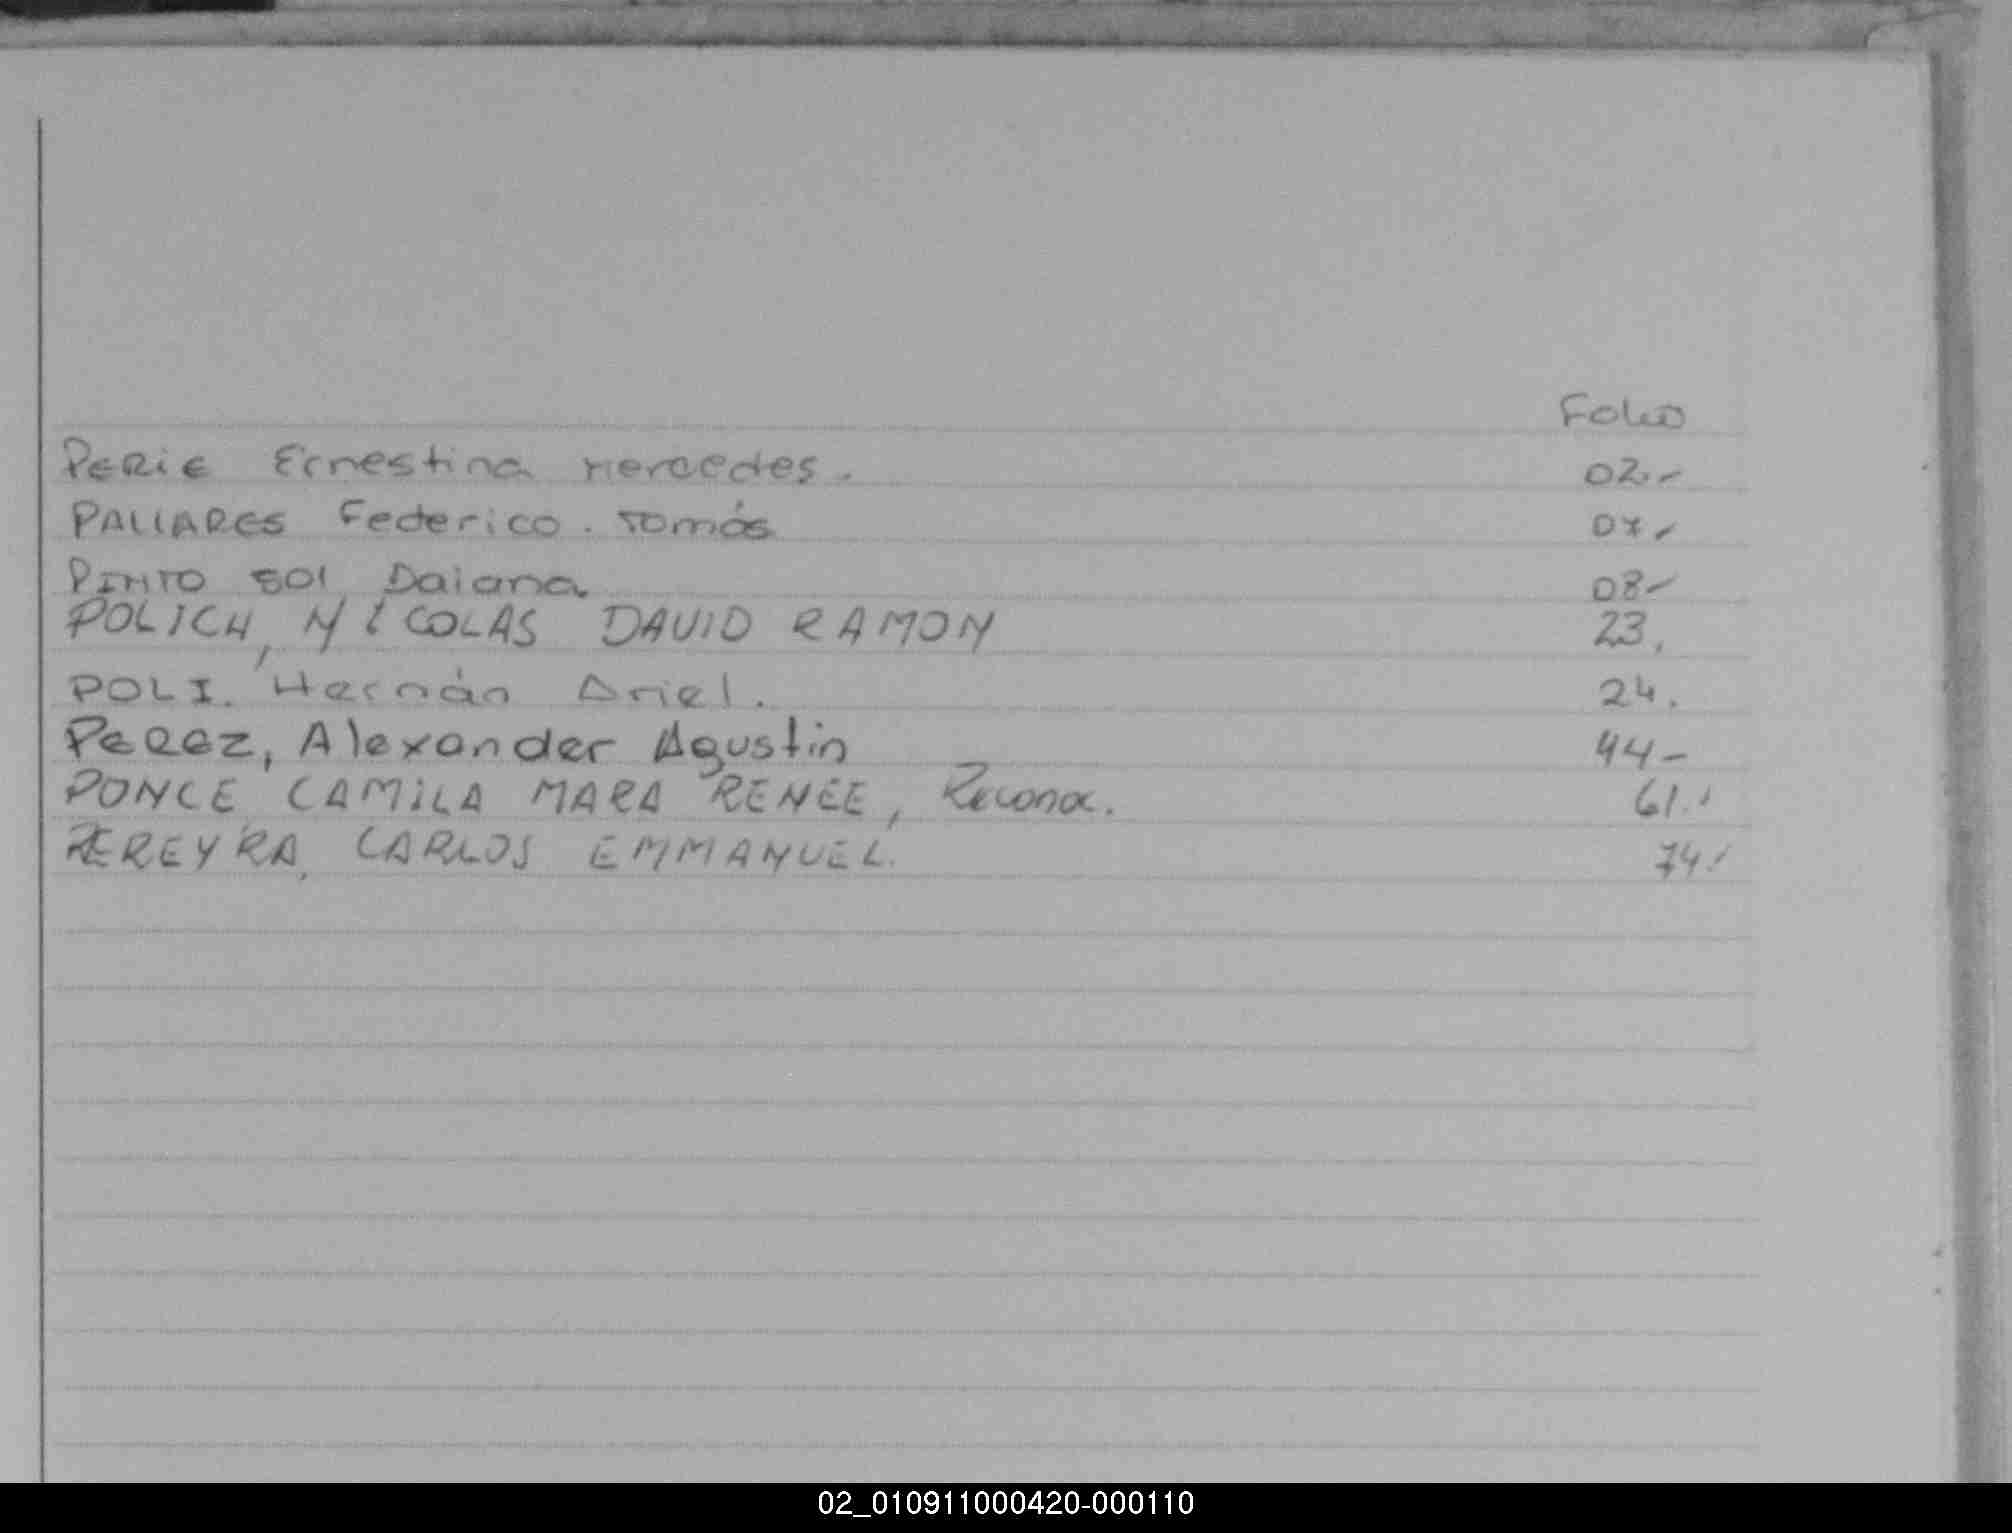 Folio
PERIE Ernestina Mercedes. 02.-
PALLARES Federico. Tomás 07.-
PINTO SOL Daiana. 08-
POLICH, NICOLAS DAVID RAMON 23.
POLI. Hernán Ariel. 24.
PEREZ, Alexander Agustin 44-
PONCE CAMILA MARA RENEE, Reconoc. 61.-
PEREYRA, CARLOS EMMANUEL. 74.-
02_010911000420-000110